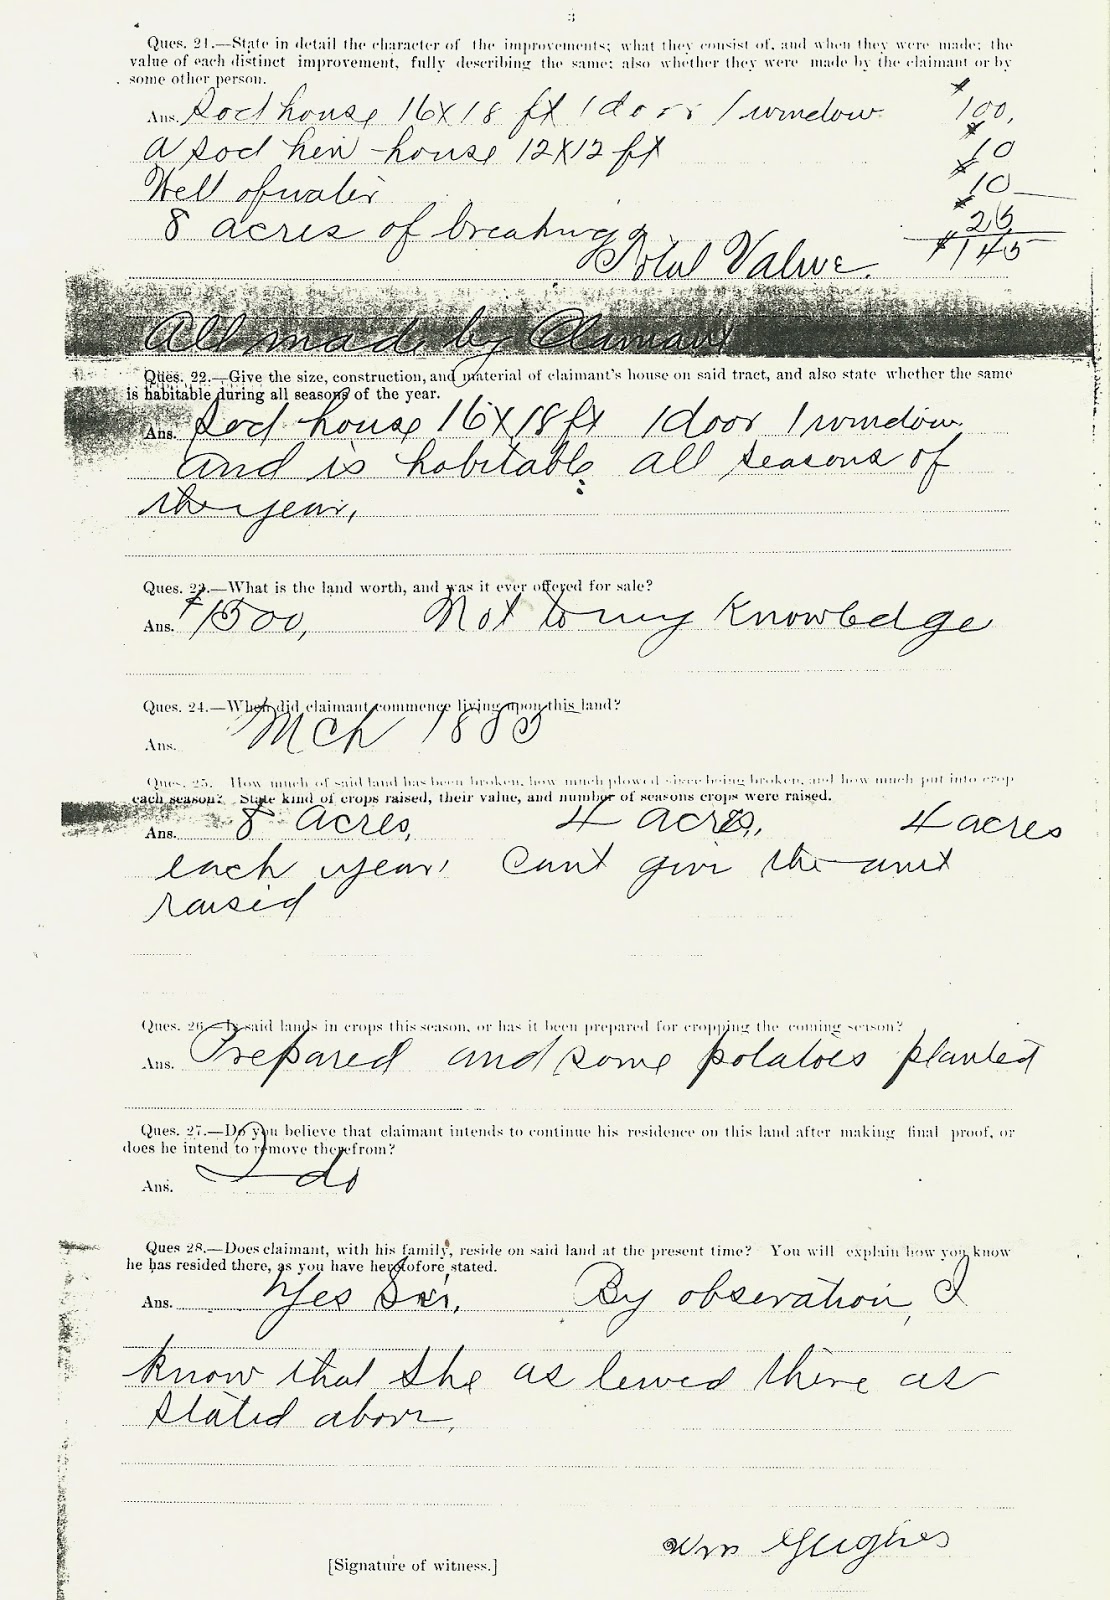 3
Ques. 21.—State in detail the character of the improvements; what they consist of, and when they were made; the
value of each distinct improvement, fully describing the same; also whether they were made by the claimant or by
some other person.
Ans. Sod house 16x18 ft 1 door 1 window $100,
a sod hen house 12x12 ft $10
Well of water $10
8 acres of breaking $25
Total Value. $145
All made by Claimant
Ques. 22.—Give the size, construction, and material of claimant's house on said tract, and also state whether the same
is habitable during all seasons of the year.
Ans. Sod house 16x18 ft 1 door 1 window
and is habitable all seasons of
the year,
Ques. 23.—What is the land worth, and was it ever offered for sale?
Ans. $1500, Not to my Knowledge
Ques. 24.—When did claimant commence living upon this land?
Ans. Mch 1885
Ques. 25. How much of said land has been broken, how much plowed since being broken, and how much put into crop
each season? State kind of crops raised, their value, and number of seasons crops were raised.
Ans. 8 acres, 4 acres, 4 acres
each year, Cant give the amt
raised
Ques. 26.—Is said lands in crops this season, or has it been prepared for cropping the coming season?
Ans. Prepared and some potatoes planted
Ques. 27.—Do you believe that claimant intends to continue his residence on this land after making final proof, or
does he intend to remove therefrom?
Ans. I do
Ques 28.—Does claimant, with his family, reside on said land at the present time? You will explain how you know
he has resided there, as you have heretofore stated.
Ans. Yes Sir, By obseration, I
know that she as lewed there as
stated above,
Wm Hughes
[Signature of witness.]